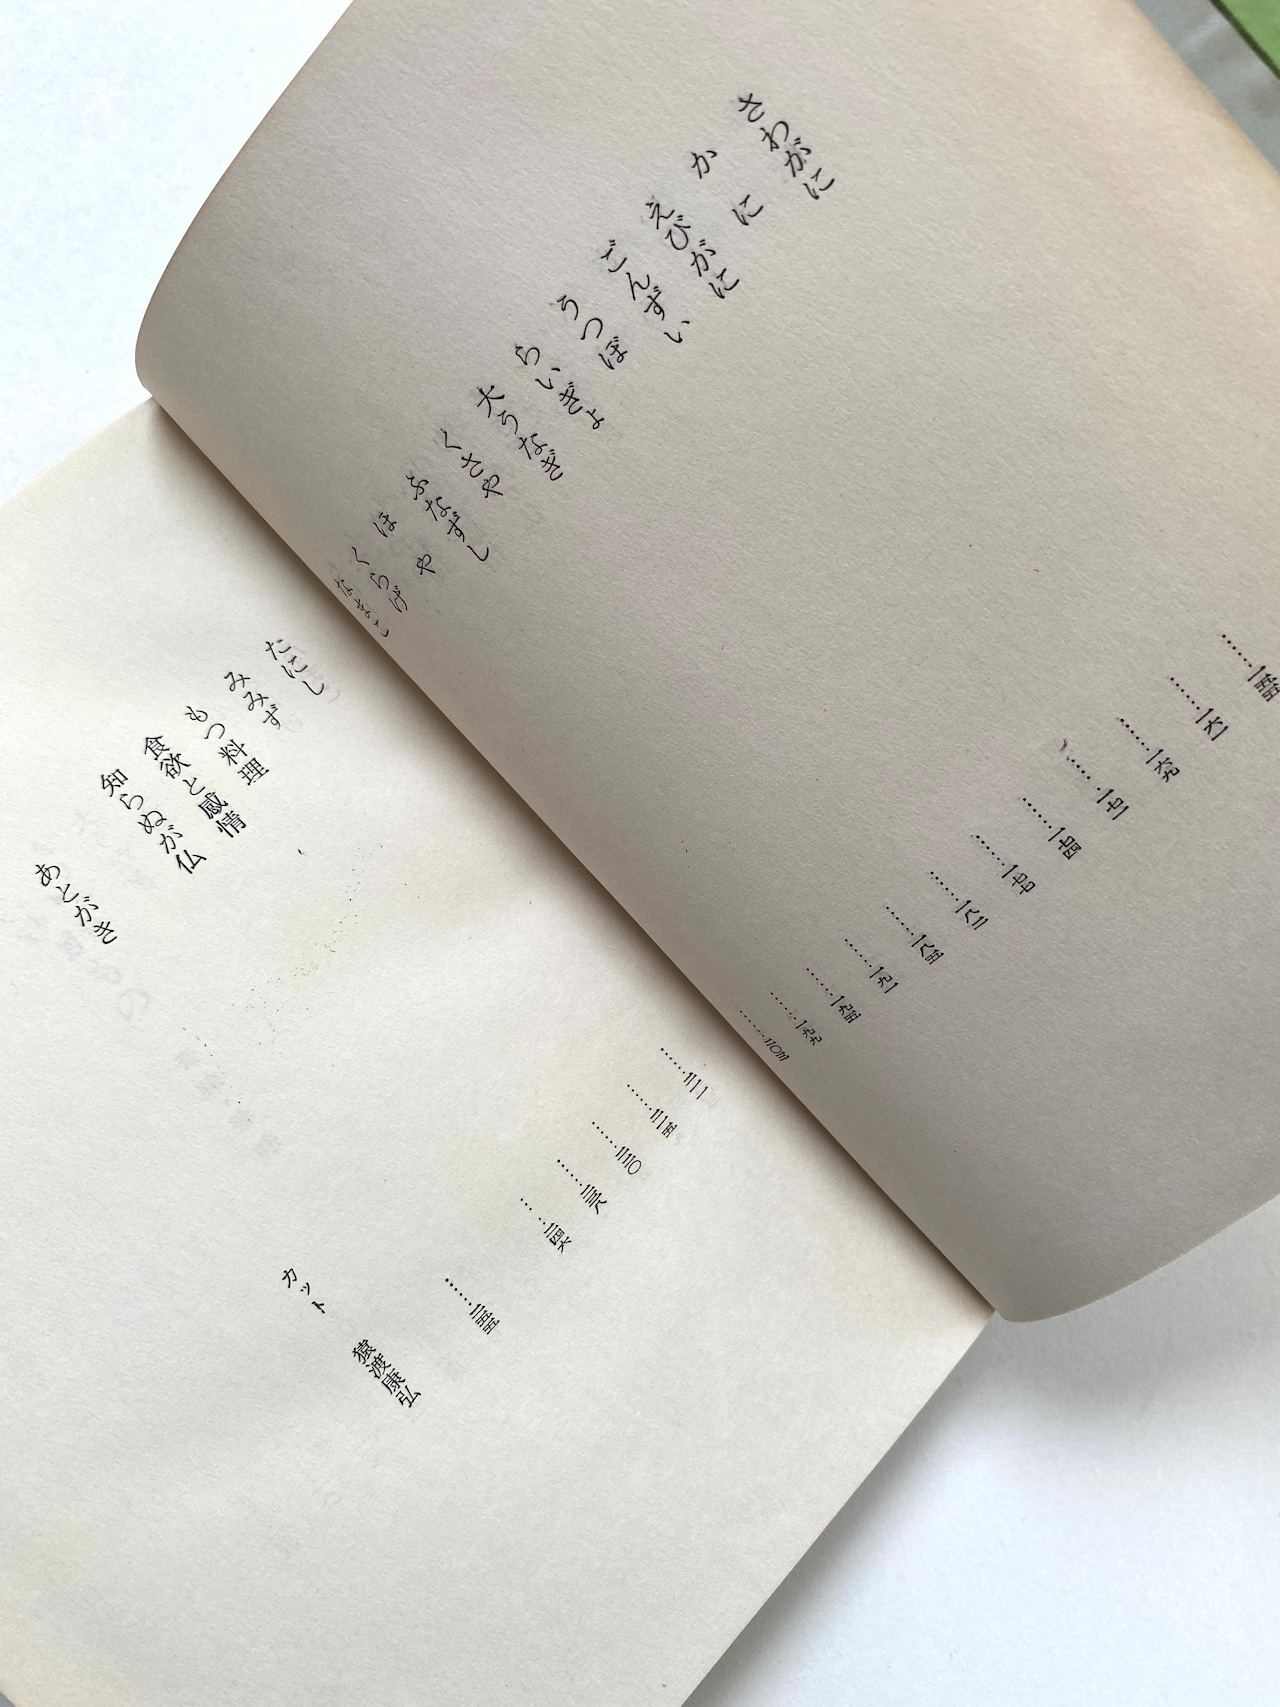 さわがに……一五五
かに……一六一
えびがに……一六九
ごんずい……一七一
うつぼ……一七四
らいぎょ……一七七
大うなぎ……一八三
くさや……一八五
ふなずし……一九一
ほや……一九五
くらげ……一九九
なまこ……二〇三
たにし……二二一
みみず……二二五
もつ料理……二三〇
食欲と感情……二三八
知らぬが仏……二四六
あとがき……二五五
カット　猿渡康弘